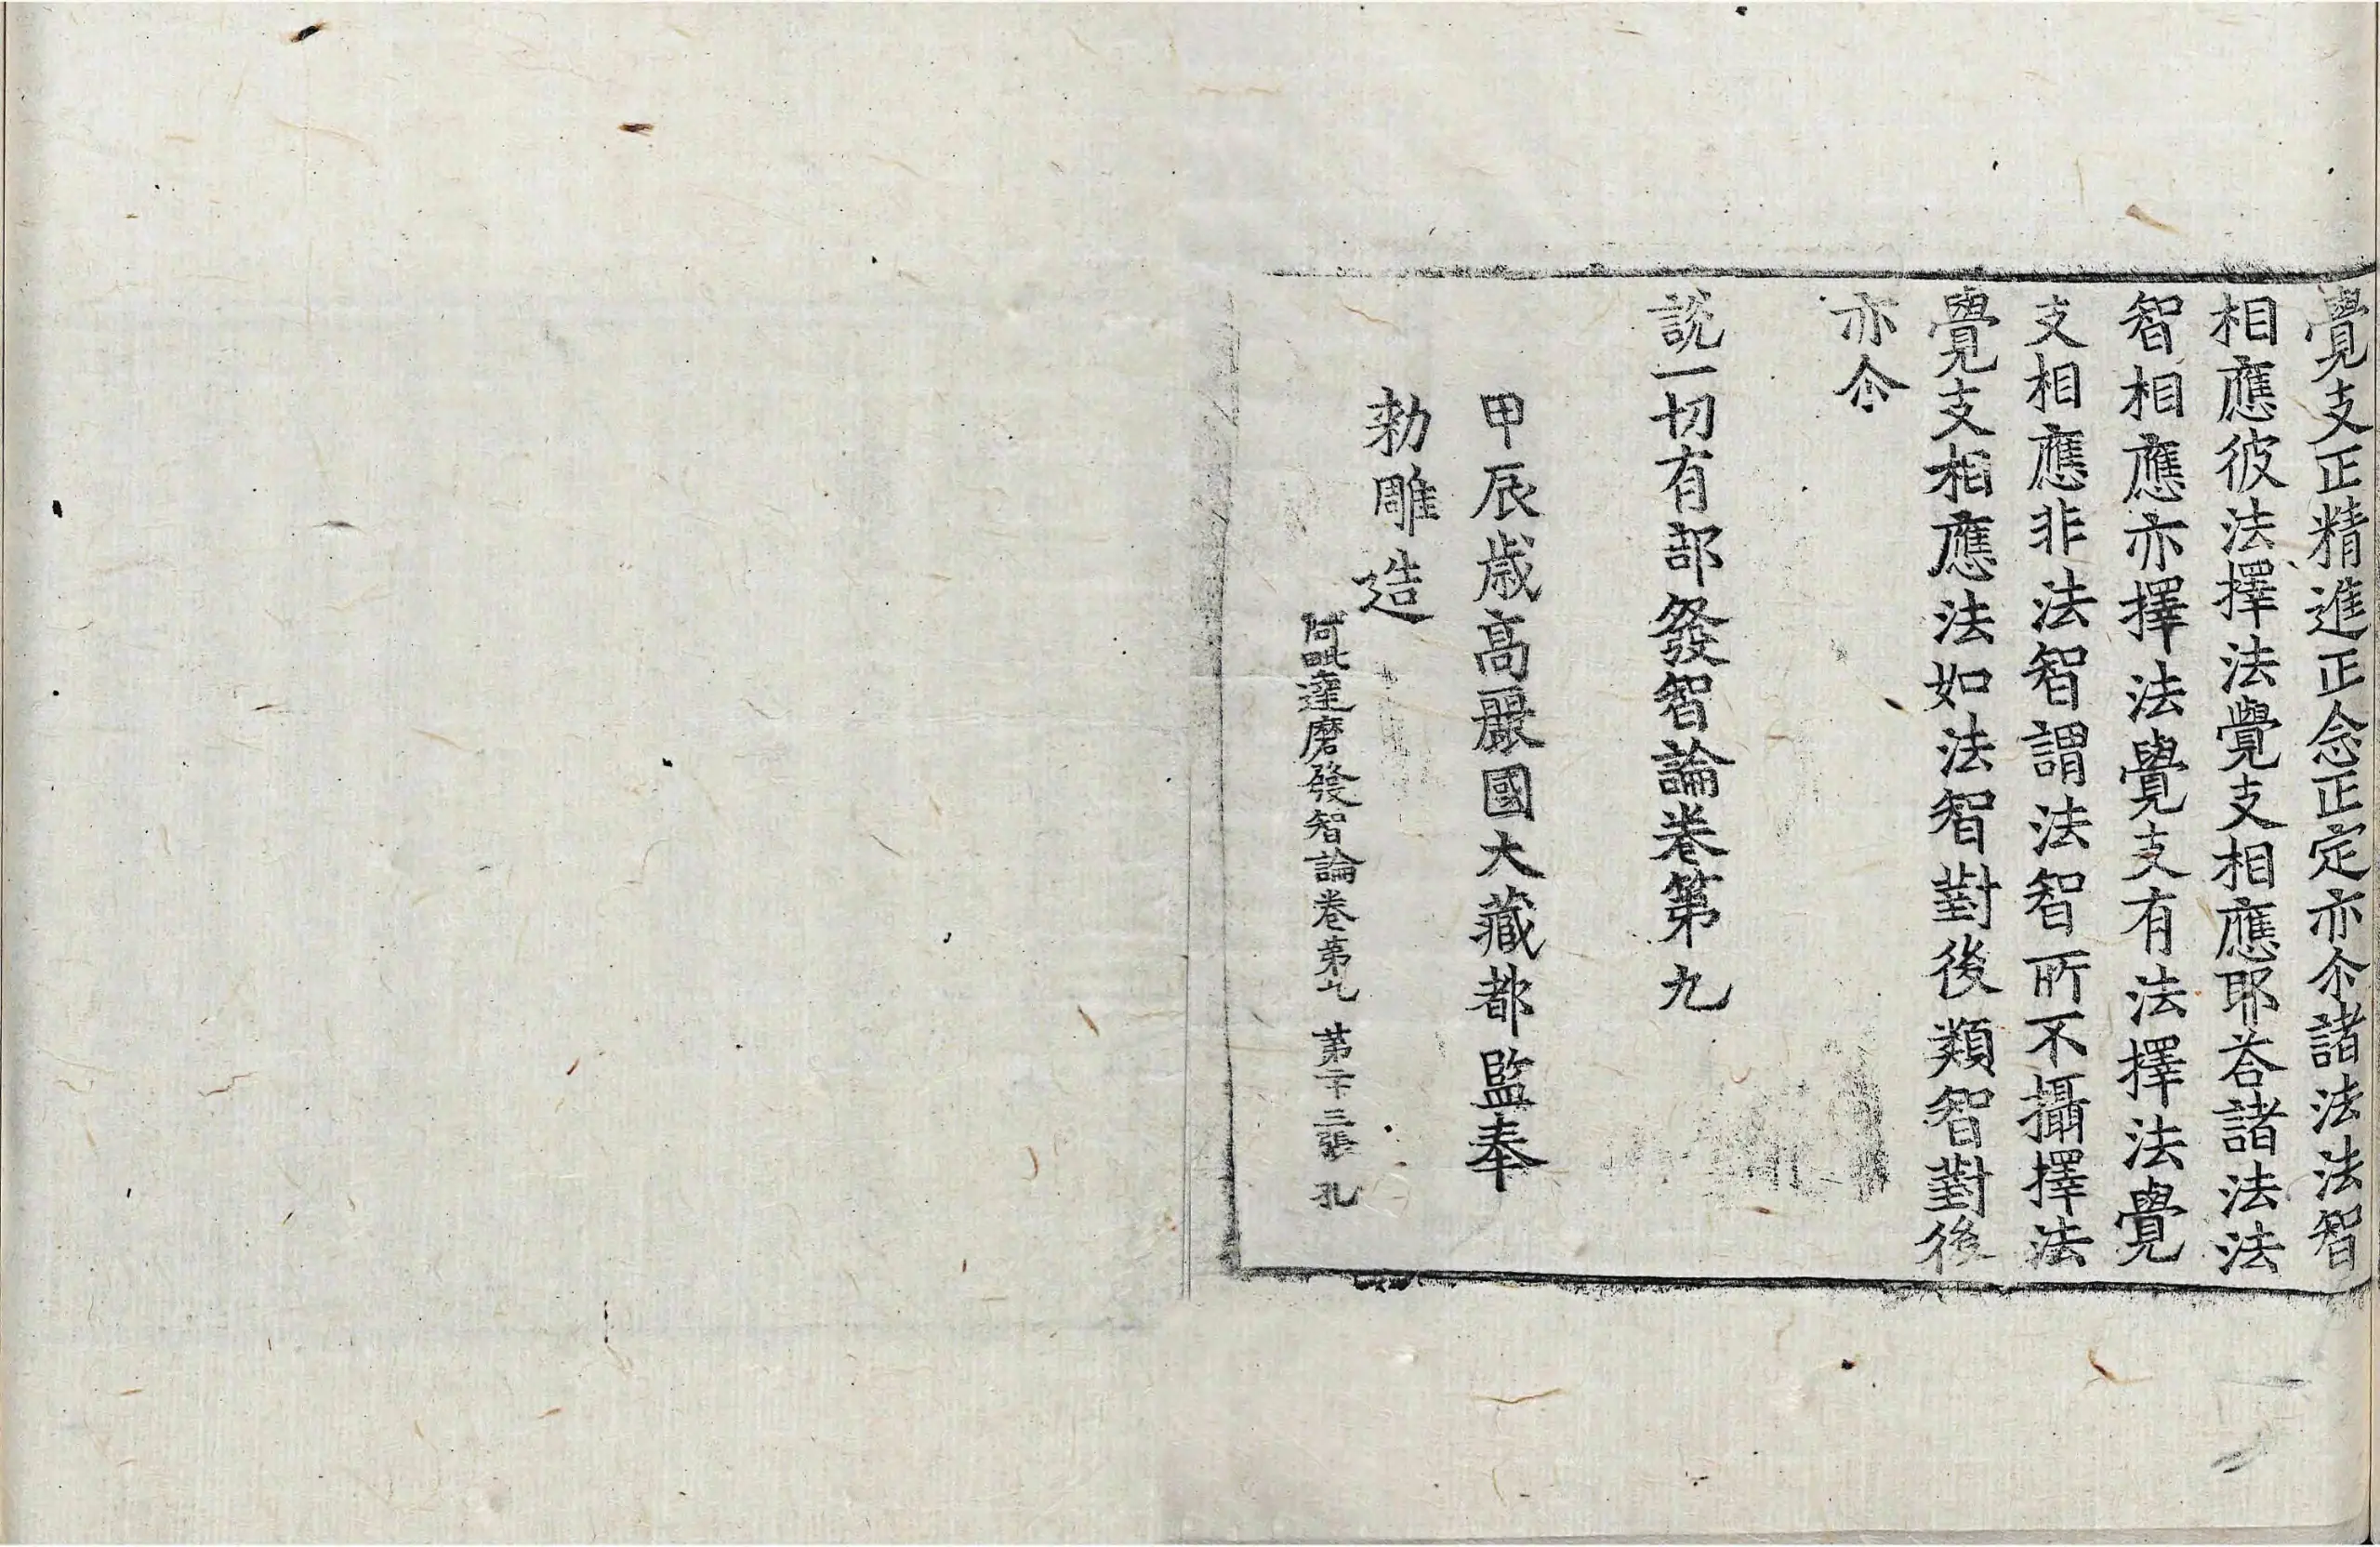 覺支正精進正念正定亦尒諸法法智
相應彼法擇法覺支相應耶荅諸法法
智相應亦擇法覺支有法擇法覺
支相應非法智謂法智所不攝擇法
覺支相應法如法智對後類智對後
亦尒
說一切有部發智論卷第九
甲辰歲高麗國大藏都監奉
勅雕造
阿毗達磨發智論卷第九 第二十三張 孔